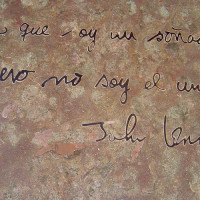 que soy un soña
ero no soy el un
John Lenn